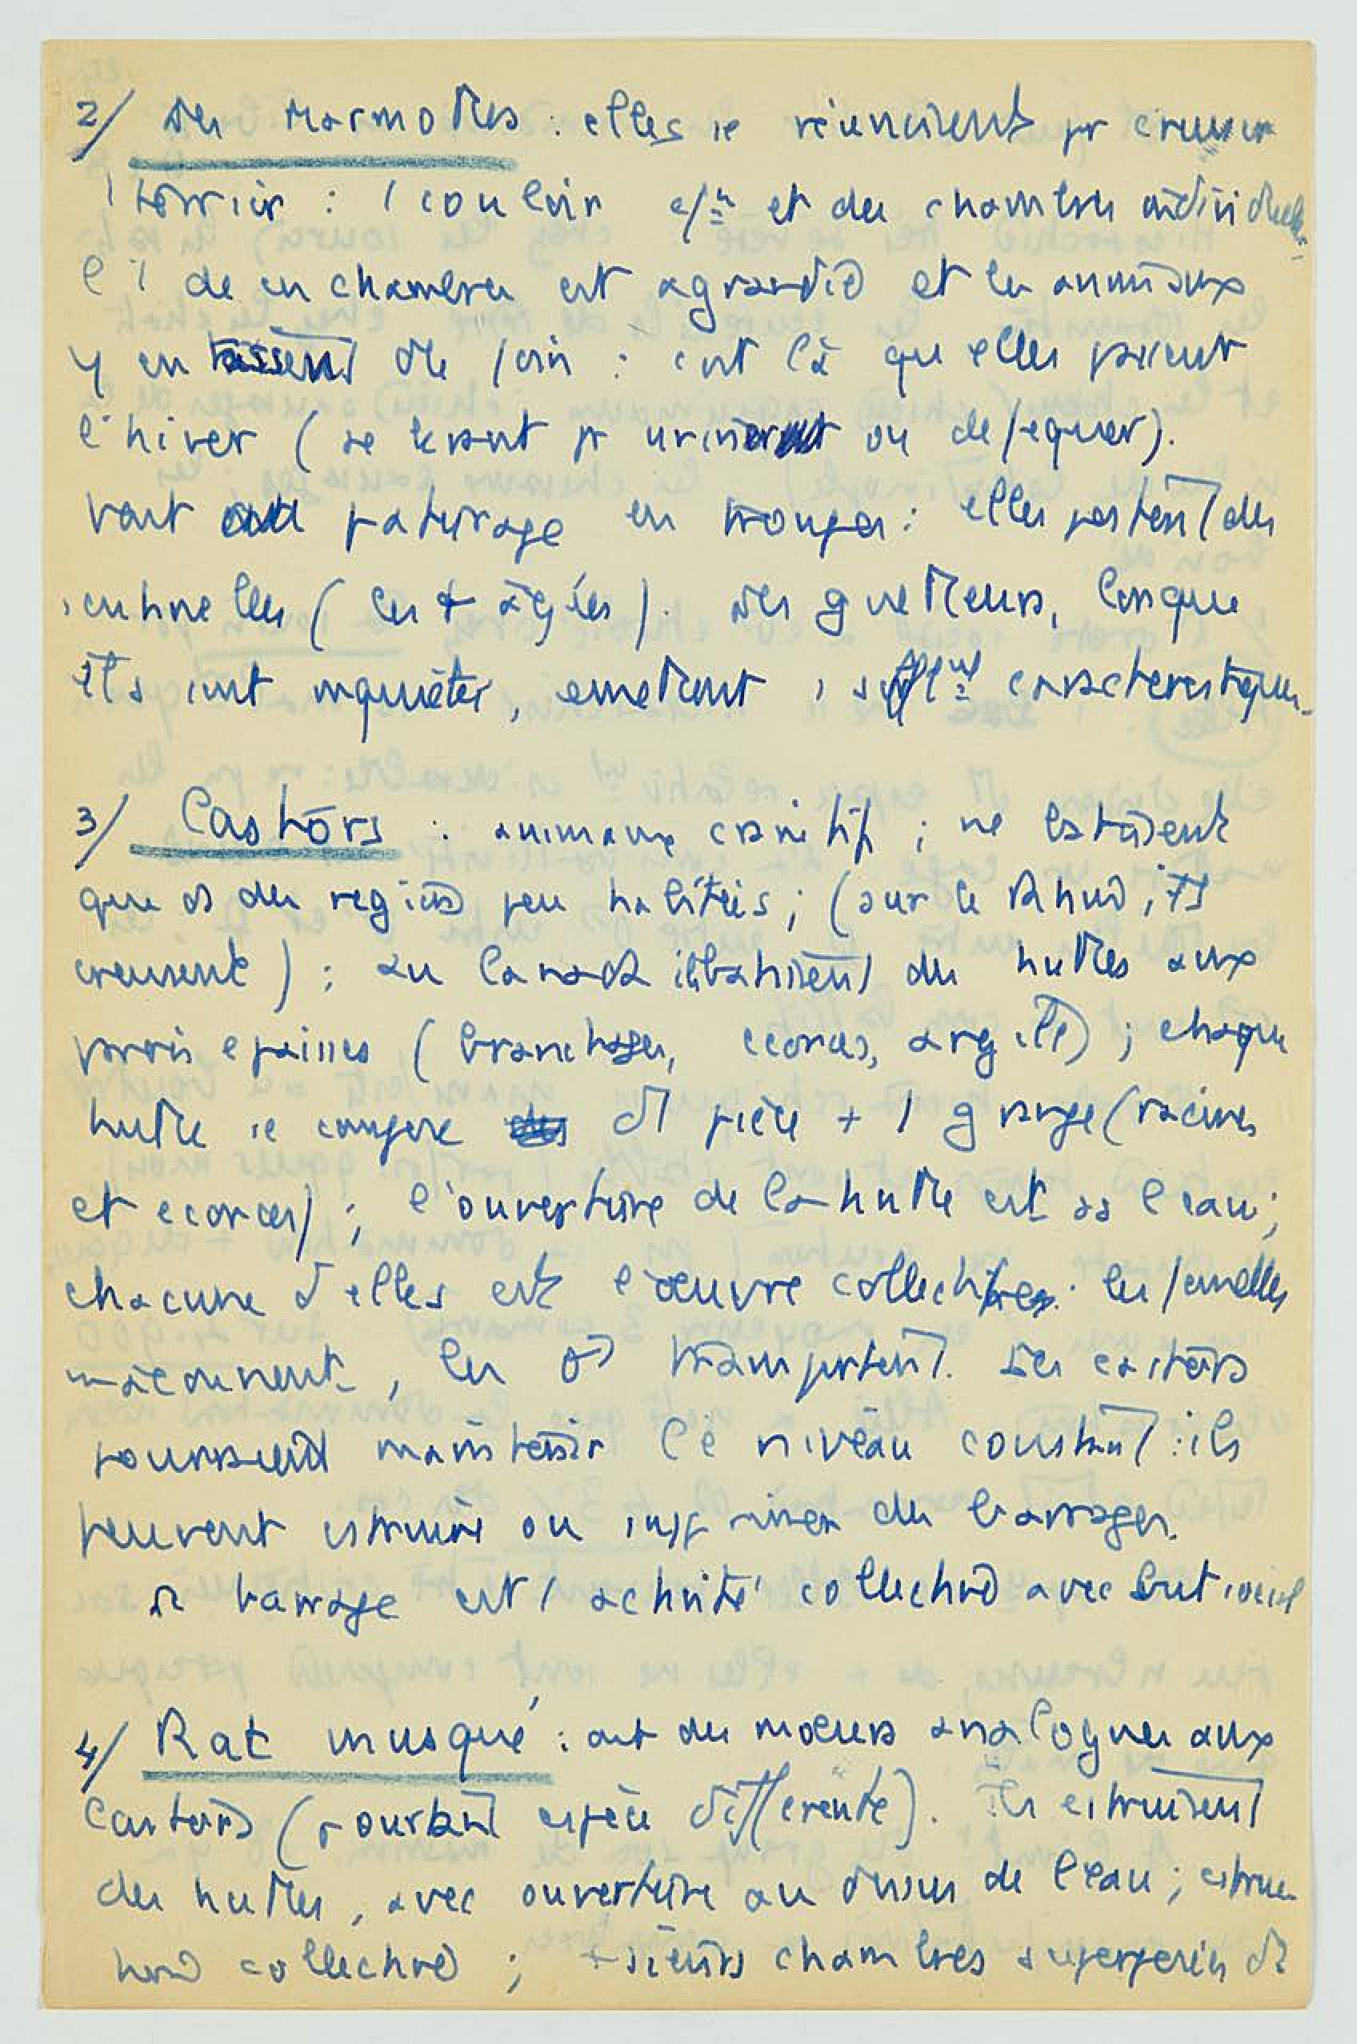 2/ Les marmottes : elles se réunissent pr creuser
1 terrier : 1 couloir c/n et des chambres individuelles
l'1 de ces chambres est agrandie et les animaux
y entassent du foin : c'est là qu'elles passent
l'hiver (se lèvent pr uriner ou defequer).
Vont au paturage en troupes : elles postent des
sentinelles (les + âgées). Les guetteurs, lorsque
ils sont inquiétés, emettent 1 sifflemt caracteristique.
3/ Castors : animaux craintifs ; ne
que ds des regions peu habitées ; (sur le Rhône, ils
creusent) ; au Canada ils batissent des huttes aux
parois epaisses (branchages, ecorces, argile) ; chaque
hutte se compose d'1 pièce + 1 grange (racines
et ecorces) ; l'ouverture de la hutte est ss l'eau ;
chacune d'elles est l'œuvre collective : les femelles
maçonnent, les ♂ transportent. Les castors
pourraient maintenir le niveau constant : ils
peuvent cstruire ou supprimer des barrages.
Le barrage est 1 activité collective avec but social
4/ Rat musqué : ont des mœurs analogues aux
Castors (pourtant espèce differente). Ils cstruisent
des huttes, avec ouverture au dessus de l'eau ; cstruc
tion collective ; +sieurs chambres superposées ds